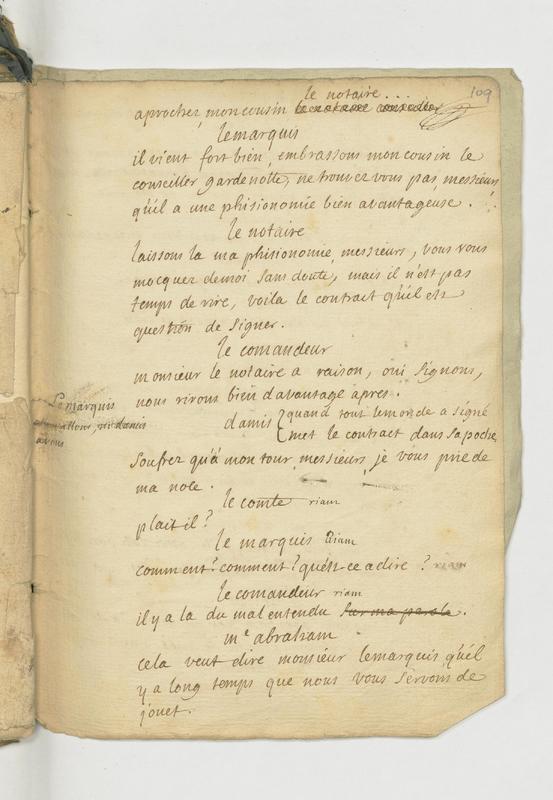 109
le notaire...
aprochez, mon cousin le notaire
le marquis
il vient fort bien, embrassons mon cousin le
conseiller gardenotte, ne trouvez vous pas, messieurs
qu'il a une phisionomie bien avantageuse.
le notaire
laissons la ma phisionomie, messieurs, vous vous
mocquez de moi sans doute, mais il n'est pas
temps de rire, voila le contract qu'il est
question de signer.
le comandeur
monsieur le notaire a raison, oui signons,
nous rirons bien d'avantage apres.
Le marquis
allons,
damis
quand tout le monde a signé
met le contract dans sa poche
Soufrez qu'à mon tour, messieurs, je vous prie de
ma noce.
le comte riam
plait il?
le marquis riam
comment? comment? qu'est-ce a dire? riam
le comandeur riam
il y a la du mal entendu sur ma parole.
me abraham
cela veut dire monsieur le marquis qu'il
y a long temps que nous vous servons de
jouet.